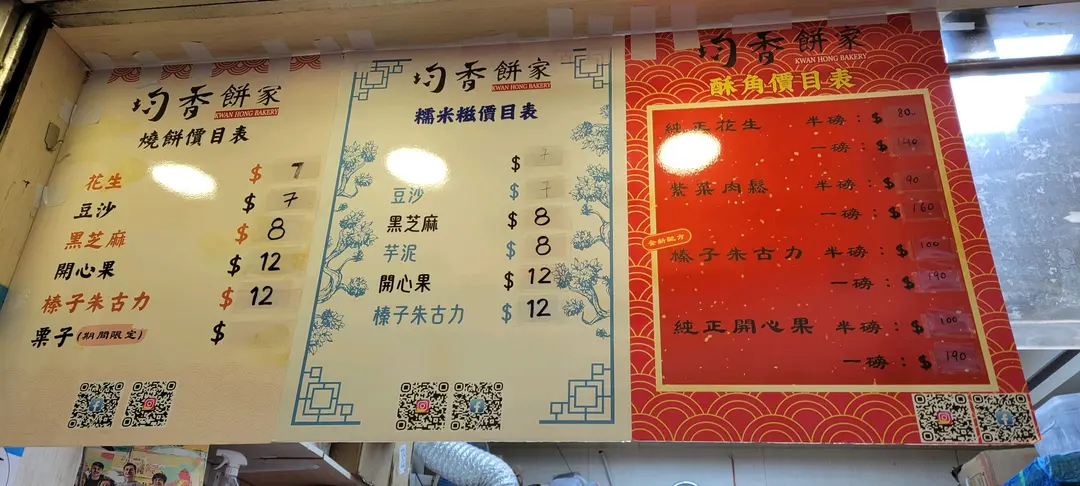 均香餅家
KWAN HONG BAKERY
燒餅價目表
花生 $ 7
豆沙 $ 7
黑芝麻 $ 8
開心果 $ 12
榛子朱古力 $ 12
栗子(期間限定) $
均香餅家
KWAN HONG BAKERY
糯米糍價目表
$ 7
豆沙 $ 7
黑芝麻 $ 8
芋泥 $ 8
開心果 $ 12
榛子朱古力 $ 12
均香餅家
KWAN HONG BAKERY
酥角價目表
純正花生 半磅:$ 80
一磅:$ 140
紫菜肉鬆 半磅:$ 90
一磅:$ 160
全新配方
榛子朱古力 半磅:$ 100
一磅:$ 190
純正開心果 半磅:$ 100
一磅:$ 190